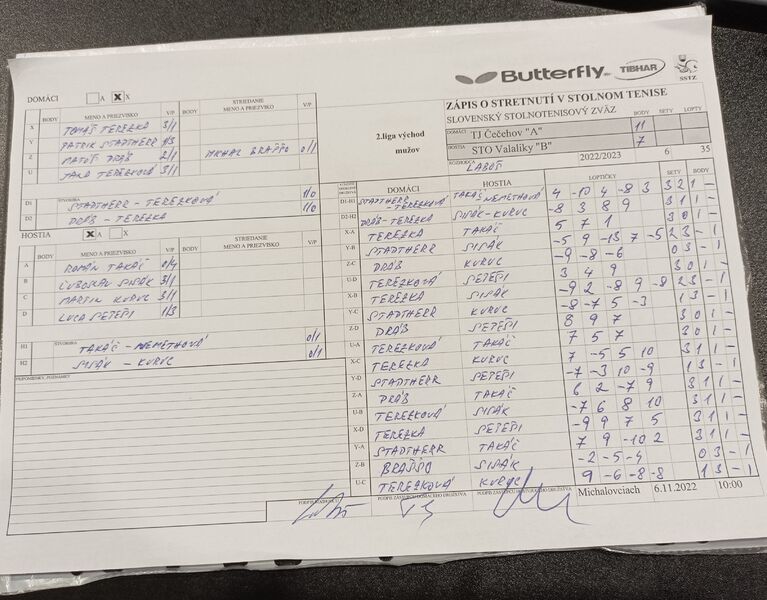 Butterfly TIBHAR
SSTZ
ZÁPIS O STRETNUTÍ V STOLNOM TENISE
SLOVENSKÝ STOLNOTENISOVÝ ZVÄZ BODY SETY LOPTY
2.liga východ
mužov
DOMÁCI TJ Čečehov "A" 11
HOSTIA STO Valaliky "B" 7
2022/2023 6 35
ROZHODCA LABOŠ
DOMÁCI A X
BODY MENO A PRIEZVISKO V/P BODY STRIEDANIE MENO A PRIEZVISKO V/P
X TOMÁŠ TEREZKA 3/1
Y PATRIK STADTHERR 1/3
Z MATÚŠ DRÁB 2/1 MICHAL BRAŇŇO 0/1
U JANA TEREZKOVÁ 3/1
ŠTVORHRA
D1 STADTHERR - TEREZKOVÁ 1/0
D2 DRÁB - TEREZKA 1/0
HOSTIA A X
BODY MENO A PRIEZVISKO V/P BODY STRIEDANIE MENO A PRIEZVISKO V/P
A ROMÁN TAKÁČ 0/4
B ĽUBOSLAV SISÁK 3/1
C MARTIN KURUC 3/1
D LUCA SEPEŠI 1/3
ŠTVORHRA
H1 TAKÁČ - NEMETHOVÁ 0/1
H2 SISÁK - KURUC 0/1
PRIPOMIENKY, POZNÁMKY
DOMÁCI HOSTIA LOPTIČKY SETY BODY
D1-H1 STADTHERR - TEREZKOVÁ TAKÁČ NEMETHOVÁ 4 -10 4 -8 3 3 2 1 -
D2-H2 DRÁB - TEREZKA SISÁK - KURUC -8 3 8 9 3 1 1 -
X-A TEREZKA TAKÁČ 5 7 1 3 0 1 -
Y-B STADTHERR SISÁK -5 9 -13 7 -5 2 3 - 1
Z-C DRÁB KURUC -9 -8 -6 0 3 - 1
U-D TEREZKOVÁ SEPEŠI 3 4 9 3 0 1 -
X-B TEREZKA SISÁK -9 2 -8 9 -8 2 3 - 1
Y-C STADTHERR KURUC -8 -7 5 -3 1 3 - 1
Z-D DRÁB SEPEŠI 8 9 7 3 0 1 -
U-A TEREZKOVÁ TAKÁČ 7 5 7 3 0 1 -
X-C TEREZKA KURUC 7 -5 5 10 3 1 1 -
Y-D STADTHERR SEPEŠI -7 -3 10 -9 1 3 - 1
Z-A DRÁB TAKÁČ 6 2 -7 9 3 1 1 -
U-B TEREZKOVÁ SISÁK -7 6 8 10 3 1 1 -
X-D TEREZKA SEPEŠI -9 9 7 5 3 1 1 -
Y-A STADTHERR TAKÁČ 7 9 -10 2 3 1 1 -
Z-B BRAŇŇO SISÁK -2 -5 -4 0 3 - 1
U-C TEREZKOVÁ KURUC 9 -6 -8 -8 1 3 - 1
Michalovciach 6.11.2022 10:00